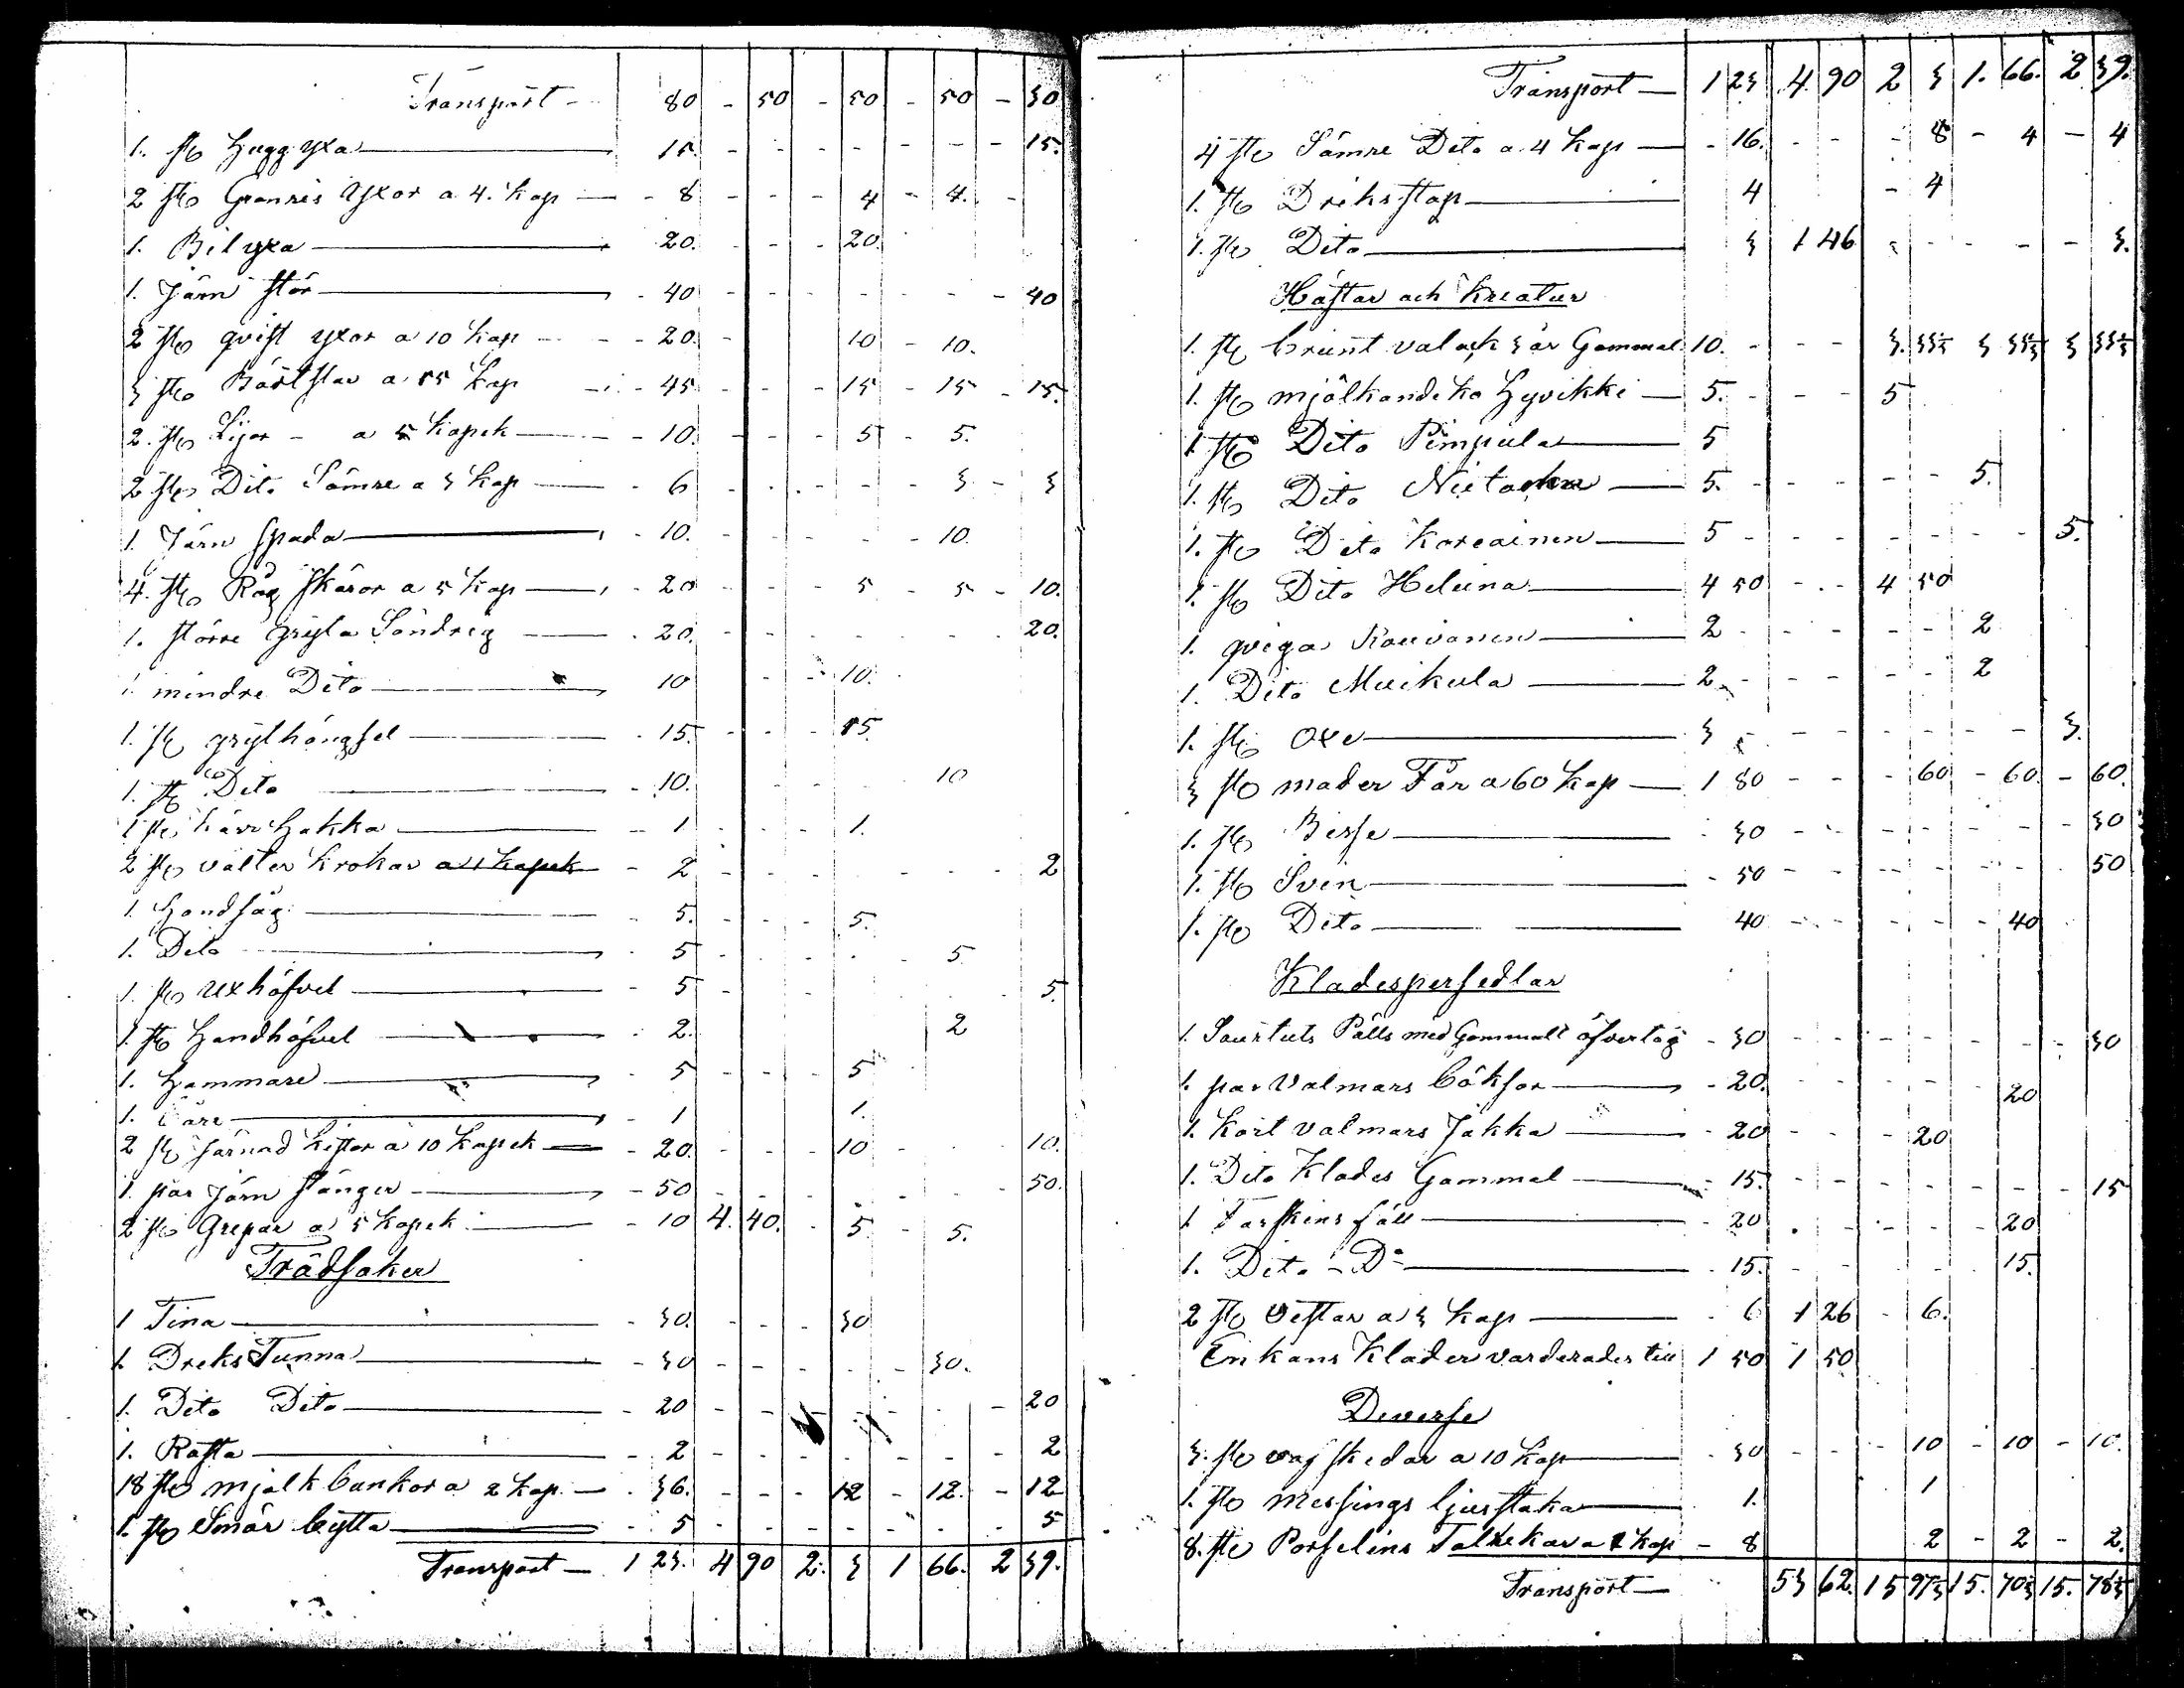 Transport - 80 - 50 - 50 - 50 - 30
1. st Hugg yxa 15. - - - - - - - 15.
2 st Granris Yxor a 4. kap - 8 - - - 4 - 4. -
1. Bil yxa 20. - - - 20.
1. Järn stör - 40 - - - - - - - 40
2 st qvist yxor a 10 kap - 20. - 10 - 10.
3 st a 15 kap - 45 - - - 15 - 15 - 15.
2. st Lijor - a 5 kapek - 10. - - - 5 - 5.
2 st Dito Sämre a 3 kap - 6 - - - - - 3 - 3
1. Järn spada - 10. - - - - - 10.
4. st Råg skäror a 5 kap - 20 - - - 5 - 5 - 10.
1. större gryta Söndrig - 20. - - - - - - - 20.
1. mindre Dito 10 - - 10.
1. st grythängsel - 15. - - - 15.
1. st Dito - 10. - - - - - 10
1 st hakka - 1 - - - 1.
2 st välter krokar a 1 kapek - 2 - - - - - - - 2
1. Handsåg - 5. - - - 5.
1. Dito - 5 - - - - - 5
1. st uxhöfvel - 5 - - - 5.
1. st Handhöfvel - 2. 2
1. Hammare - 5 - - - 5
1. - 1 1.
2 st kistor a 10 kapek - 20. - - - 10 - - - 10.
1. par järn stänger - 50 - - - - - - - 50.
2 st Grepar a 5 kapek - 10 4. 40. - 5 - 5.
Trädsaker
1 Tina - 30. - - - 30
1. Dreks Tunna - 30 - - - - - 30.
1. Dito Dito - 20 - - - - - - - 20
1. Råsta - 2 - - - - - - - 2
18 st mjölk bunkor a 2 kap. - 36. - - - 12 - 12. - 12
1. st Smör bytta - 5 - - - - - - - 5
Transport - 1 23. 4 90 2. 3 1 66. 2 39.
Transport - 1 23 4. 90 2 3 1. 66. 2 39.
4 st Sämre Dito a 4 kap - 16. - - - 8 - 4 - 4
1. st Driksstop 4 - 4
1. st Dito 3 1 46 - - - - - 3.
Hästar och Kreatur
1. st brunt valack 3 år Gammal 10. - - - 3. 33⅓ 3 33⅓ 3 33⅓
1. st mjölkande ko Hyvikki 5. - - - 5
1 st Dito Pimpula 5
1. st Dito 5. - - - - - 5.
1. st Dito Koreainen 5 - - - - - - - 5.
1. st Dito Heluna 4 50 - - 4 50
1. qviga Rouvanen 2 - - - - - 2
1. Dito Muikula 2 - - - - - 2
1. st oxe 3 - - - - - - - 3.
3 st mader Får a 60 kap 1 80 - - - 60 - 60. - 60.
1. st Besse - 30 - - - - - - - 30
1. st Svin - 50 - - - - - - - 50
1. st Dito 40 - - - - - 40
Kladespersedlar
1. Pälls med Gammalt öfvertåg - 30 - - - - - - - 30
1. par Valmars böksor - 20. - - - - - 20
1. kort valmars Jakka - 20 - - - 20
1. Dito Klades Gammal - 15. - - - - - - - 15
1 Farskins fäll - 20 - - - - - 20
1. Dito - Do - 15. - - - - - 15.
2 st Vestar a 3 kap - 6 1 26 - 6.
Enkans Klader varderades till 1 50 1 50
Deverse
3. st vaf skedar a 10 kap - 30 - - - 10 - 10 - 10.
1. st messings ljusstaka 1. 1
8. st Porselins Talrekar a 1 kap - 8 2 - 2 - 2.
Transport - 53 62. 15 97⅓ 15. 70⅓ 15. 78⅓